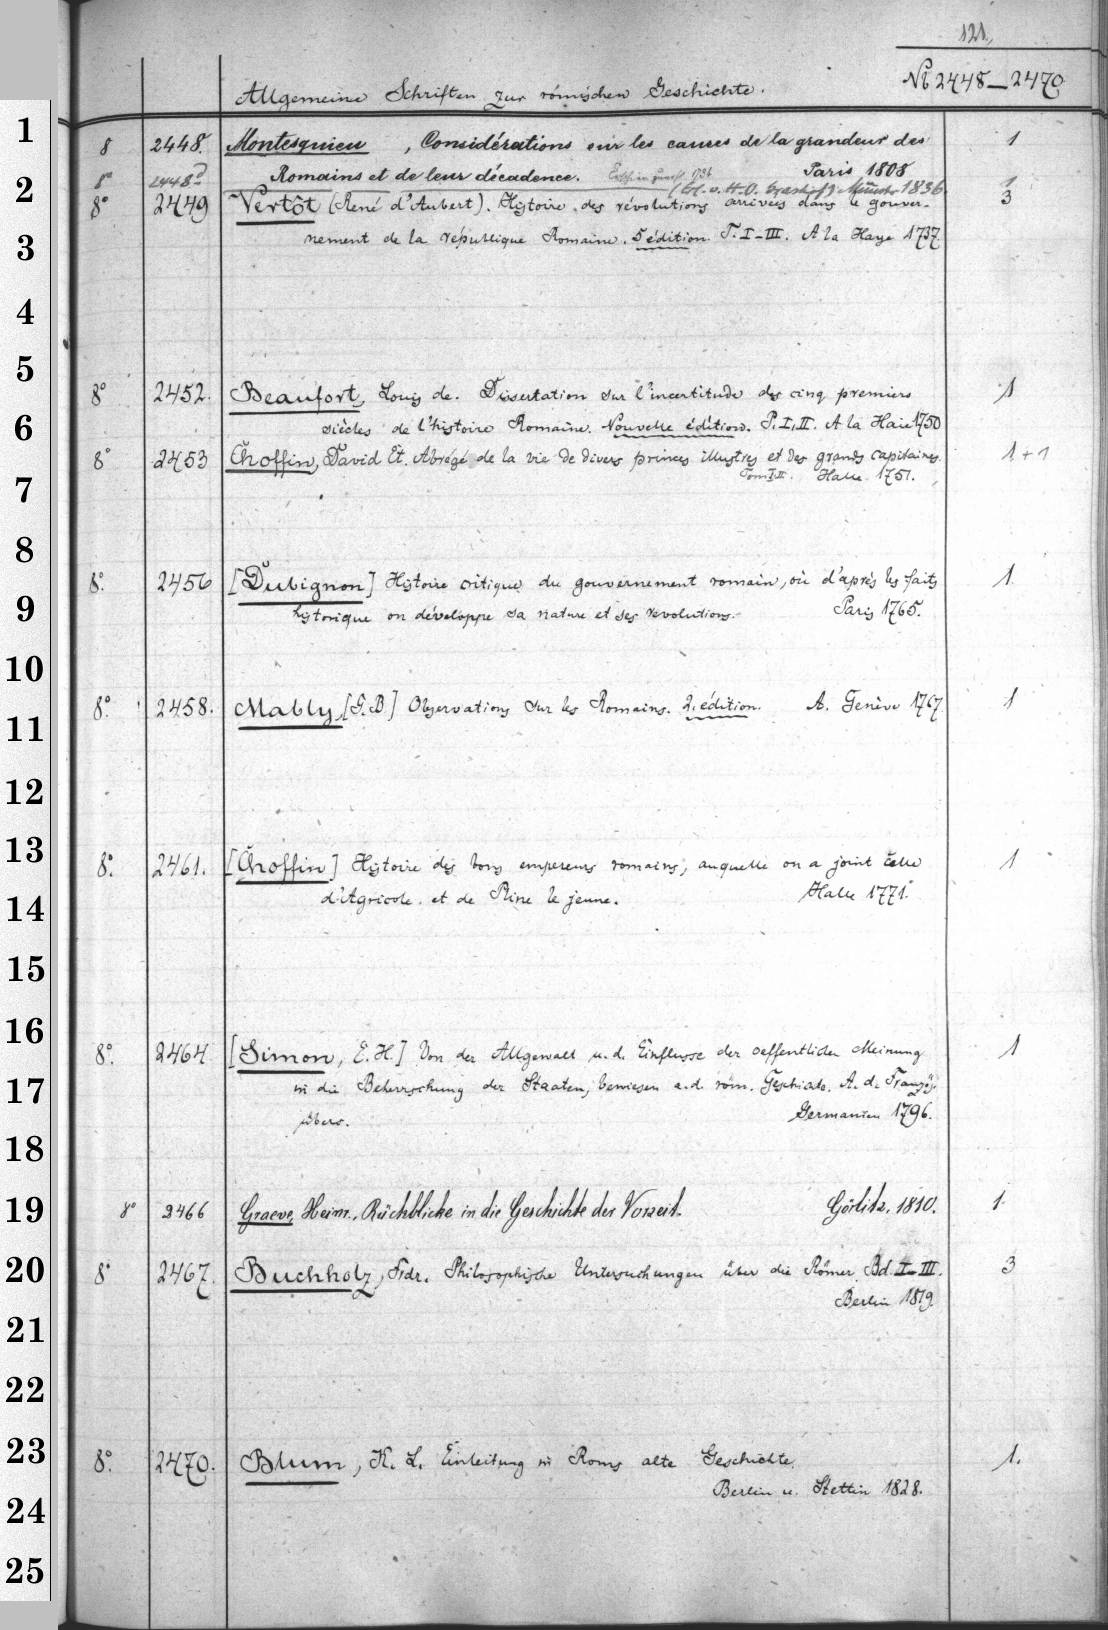 121.
Allgemeine Schriften zur römischen Geschichte. № 2448—2470
1 8 2448. Montesquieu, Considérations sur les causes de la grandeur des 1
Romains et de leur décadence. Paris 1808
2 8° 2448a 1836 1
8° 2449 Vertôt (René d'Aubert). Histoire des révolutions arrivées dans le gouver- 3
3 nement de la république Romaine. 5 édition. T. I–III. A la Haye 1737.
4
5 8° 2452. Beaufort, Louis de. Dissertation sur l'incertitude des cinq premiers 1
6 siècles de l'histoire Romaine. Nouvelle édition. P. I, II. A la Haie 1750
8° 2453 Choffin, David Et. Abrégé de la vie de divers princes illustres et des grands capitaines. 1+1
7 Tom I. II. Halle 1751.
8
8° 2456 [Dubignon] Histoire critique du gouvernement romain, où d'après les faits 1
9 historique on développe sa nature et ses revolutions. Paris 1765.
10
8° 2458. Mably, [G.B] Observations sur les Romains. 2. édition. A. Genève 1767. 1
11
12
13 8° 2461. [Choffin] Histoire des bons empereurs romains, auquelle on a joint celle 1
14 d'Agricole et de Pline le jeune. Halle 1771.
15
16
8° 2464 [Simon, E. H.] Von der Allgewalt u. d. Einflusse der oeffentlichen Meinung 1
17 in die Beherrschung der Staaten, bewiesen a. d. röm. Geschichte. A. d. Französ.
übers. Germanien 1796.
18
19 8° 2466 Graeve, Heinr., Rückblicke in die Geschichte der Vorzeit. Görlitz, 1810. 1.
20 8° 2467. Buchholz, Frdr. Philosophische Untersuchungen über die Römer. Bd. I–III. 3
Berlin 1819.
21
22
23 8° 2470. Blum, K. L. Einleitung in Roms alte Geschichte. 1.
Berlin u. Stettin 1828.
24
25